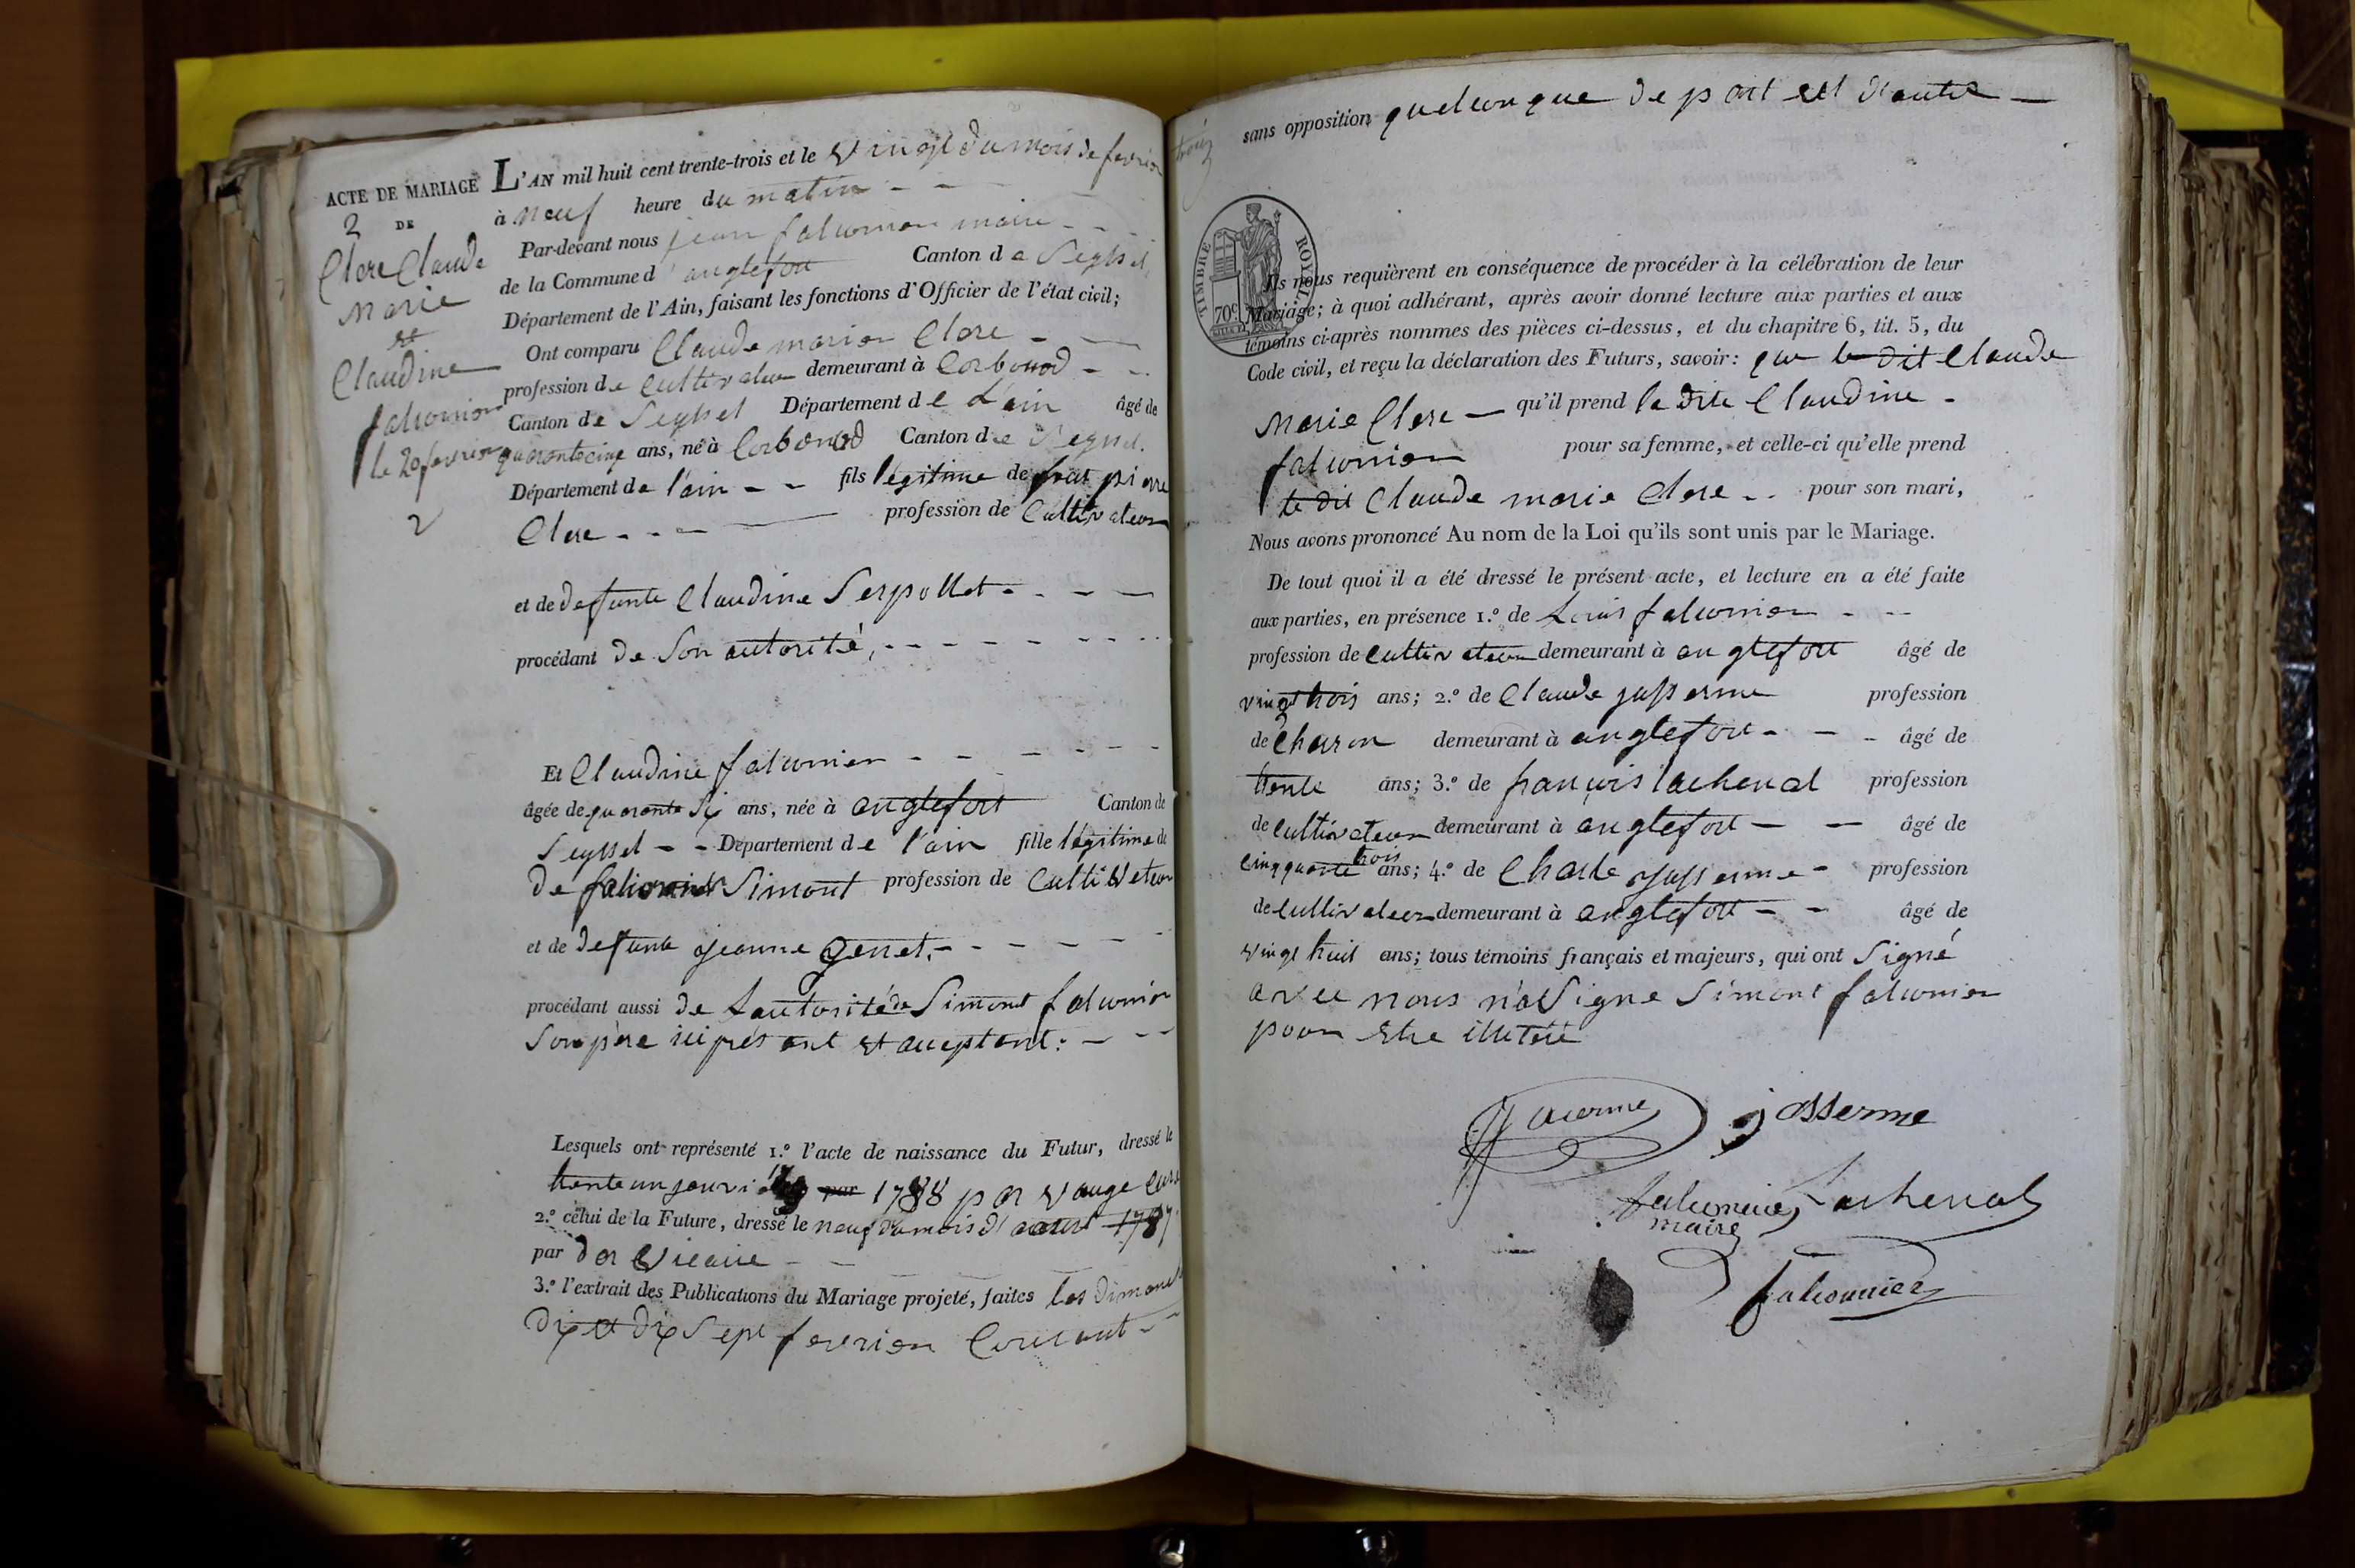 ACTE DE MARIAGE
2 DE
Clere Claude
Marie
et
Claudine
falconnier
le 20 fevrier
2
L'AN mil huit cent trente-trois et le vingt du mois de fevrier
à neuf heure du matin
Par-devant nous jean falconnier maire
de la Commune d'anglefort Canton de Seyssel,
Département de l'Ain, faisant les fonctions d'Officier de l'état civil;
Ont comparu Claude marie Clere
profession de Cultivateur demeurant à Corbonod
Canton de Seyssel Département de L'ain âgé de
quarante cinq ans, né à Corbonod Canton de Seyssel.
Département de l'ain fils légitime de pierre
Clere profession de Cultivateur
et de defunte Claudine Serpollet
procédant de Son autorité,
Et Claudine falconnier
âgée de quarante Six ans, née à anglefort Canton de
Seyssel Département de l'ain fille légitime de
De falconnier Simont profession de Cultivateur
et de defunte jeanne genet.
procédant aussi de Lautorité de Simont falconnier
Son père ici présent et acceptant:
Lesquels ont représenté 1.º l'acte de naissance du Futur, dressé le
trente un 1788 par Curé
2.º celui de la Future, dressé le neuf du mois d'aout 1787
par Vicaire
3.º l'extrait des Publications du Mariage projeté, faites les dimanches
Dix et dix Sept fevrier Courant
sans opposition quelconque de part et d'autre
TIMBRE ROYAL
70c
Ils nous requièrent en conséquence de procéder à la célébration de leur
Mariage; à quoi adhérant, après avoir donné lecture aux parties et aux
témoins ci-après nommes des pièces ci-dessus, et du chapitre 6, tit. 5, du
Code civil, et reçu la déclaration des Futurs, savoir: que le dit Claude
Marie Clere qu'il prend la dite Claudine
falconnier pour sa femme, et celle-ci qu'elle prend
le dit Claude marie Clere pour son mari,
Nous avons prononcé Au nom de la Loi qu'ils sont unis par le Mariage.
De tout quoi il a été dressé le présent acte, et lecture en a été faite
aux parties, en présence 1.º de Louis falconnier
profession de cultivateur demeurant à anglefort âgé de
vingt trois ans; 2.º de Claude jasserme profession
de Charon demeurant à anglefort âgé de
trente ans; 3.º de françois lachenal profession
de cultivateur demeurant à anglefort âgé de
cinquante trois ans; 4.º de Charle jasserme profession
de cultivateur demeurant à anglefort âgé de
vingt huit ans; tous témoins français et majeurs, qui ont Signé
avec nous n'a Signe Simont falconnier
pour etre illitéré
jacerme jasserme
falconnier Lachenal
maire
falconnier